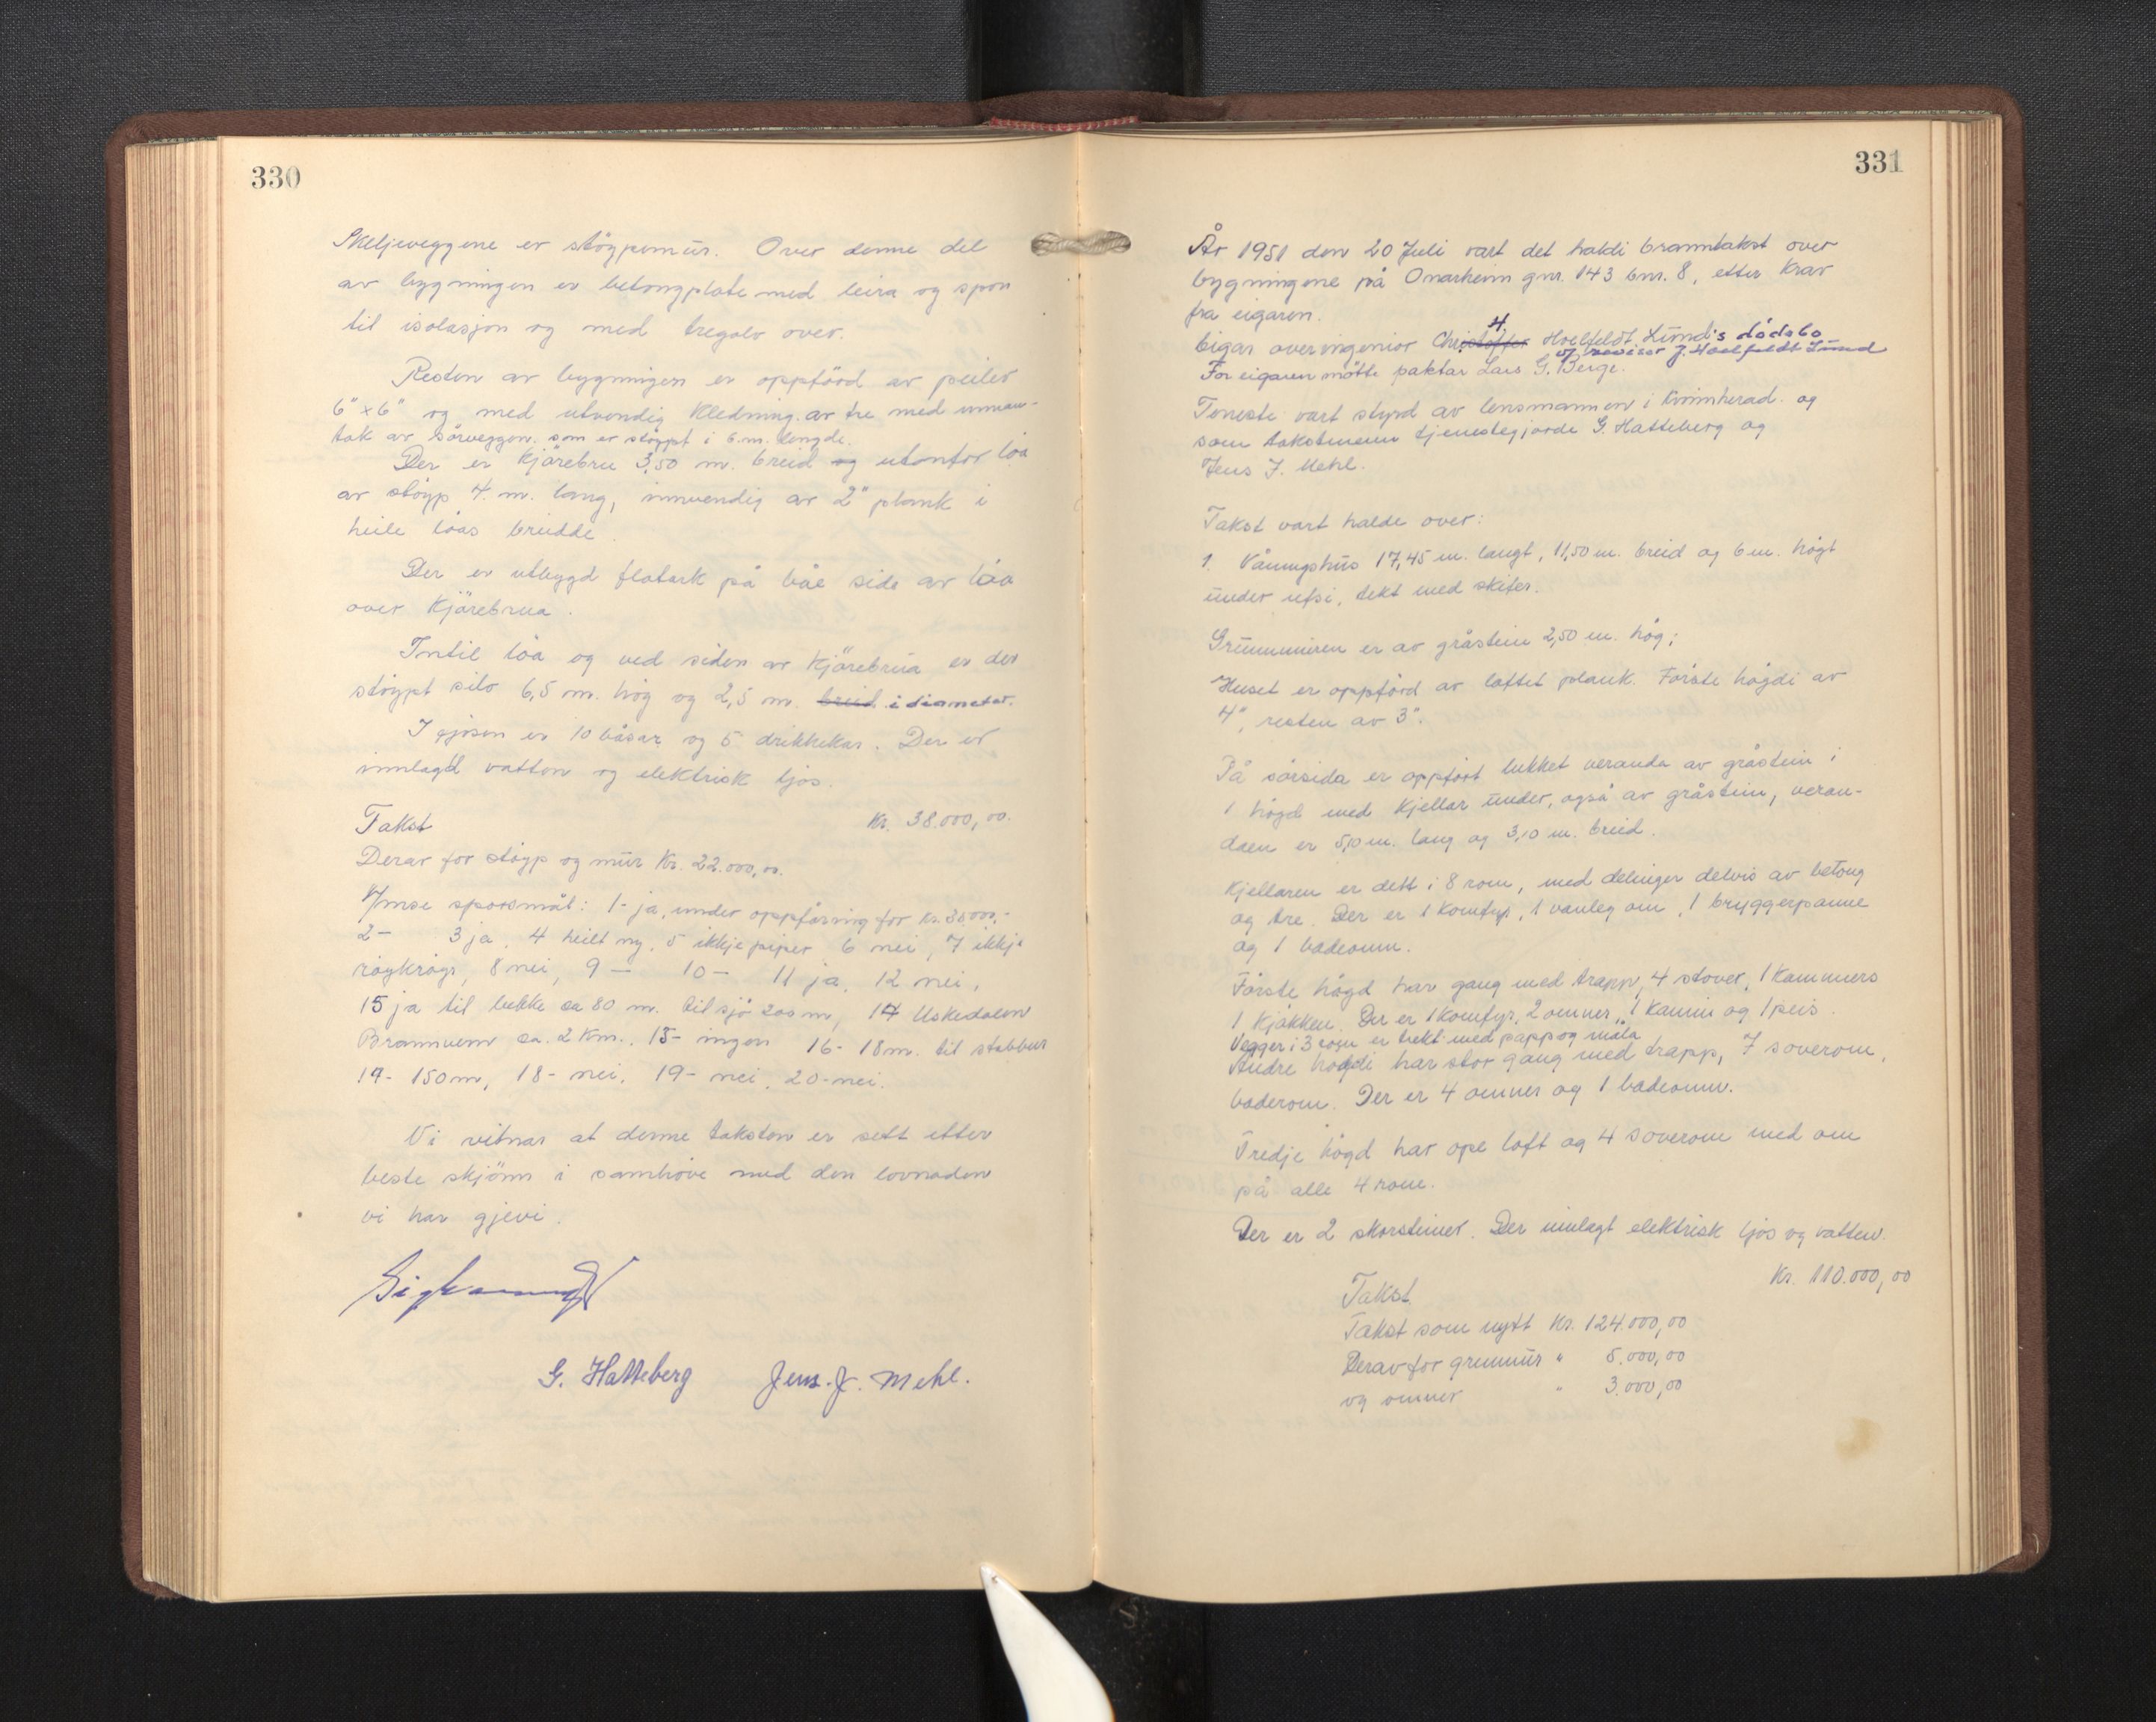 330
Skeljeveggene er stöypemur. Over denne del
av bygningen er betongplate med leira og spon
til isolasjon og med tregolv over.
Resten av bygningen er oppförd av peiler
6" x 6" og med utvendig kledning av tre med unnan-
tak av sörveggen, som er stöypt i 6 m. lengde.
Der er kjörebru 3,50 m. breid og utanfor löa
av stöyp 4 m. lang, innvendig av 2" plank i
heile löas breidde.
Der er utbygd flatark på båe side av löa
over kjörebrua.
Intil löa og ved siden av kjörebrua er der
stöypt silo 6,5 m. hög og 2,5 m. breid i diameter.
I fjösen er 10 båsar og 5 drikkekar. Der er
innlagd vatten og elektrisk ljos.
Takst Kr. 38.000,00.
Derav for stöyp og mur Kr. 22.000,00.
Ymse sporsmål: 1- ja, under oppföring for kr. 30000,-
2- 3 ja, 4 heilt ny, 5 ikkje piper 6 nei, 7 ikkje
röykrögr, 8 nei, 9 — 10 — 11 ja, 12 nei,
15 ja til bekke ca 80 m. til sjö 200 m, 14 Uskedalen
Brannvern ca. 2 km., 15- ingen 16- 18 m. til stabbur
17- 150 m, 18- nei, 19- nei, 20- nei.
Vi vitnar at denne taksten er sett etter
beste skjönn i samhöve med den lovnaden
vi har gjevi.
G. Hatteberg Jens. J. Mehl.
331
År 1951 den 20 Juli vart det haldi branntakst over
bygningene på Onarheim gnr. 143 bnr. 8, etter krav
fra eigaren.
4.
Eigar overingeniör Christoffer Hoelfeldt Lund's dödsbo
v/ revisor J. Hoelfeldt Lund
For eigaren mötte paktar Lars G. Berge.
Teneste vart styrd av lensmannen i Kvinnherad og
som takstmenn tjenestegjorde G. Hatteberg og
Jens J. Mehl.
Takst vart halde over:
1. Våningshus 17,45 m. langt, 11,50 m. breid og 6 m. högt
under ufsi, tekt med skifer.
Grunnmuren er av gråstein 2,50 m. hög;
Huset er oppförd av laftet plank. Förste högdi av
4", resten av 3".
På sörsida er oppfört lukket veranda av gråstein i
1 högd med kjellar under, også av gråstein, veran-
daen er 5,0 m. lang og 3,10 m. breid.
Kjellaren er delt i 8 rom, med delinger delvis av betong
og tre. Der er 1 komfyr, 1 vanleg omn, 1 bryggerpanne
og 1 badeomn.
Förste högd har gang med trapp, 4 stover, 1 kammers
1 kjökken. Der er 1 komfyr, 2 omner, 1 kamin og 1 peis.
Vegger i 3 rom er trekt med papp og måla
Andre högdi har stor gang med trapp, 7 soverom,
baderom. Der er 4 omner og 1 badeomn.
Tredje högd har ope loft og 4 soverom med omn
på alle 4 rom.
Der er 2 skorsteiner. Der innlagt elektrisk ljos og vatten.
Takst Kr. 110.000,00
Takst som nytt Kr. 124.000,00
Derav for grunmur " 5.000,00
og omner " 3.000,00